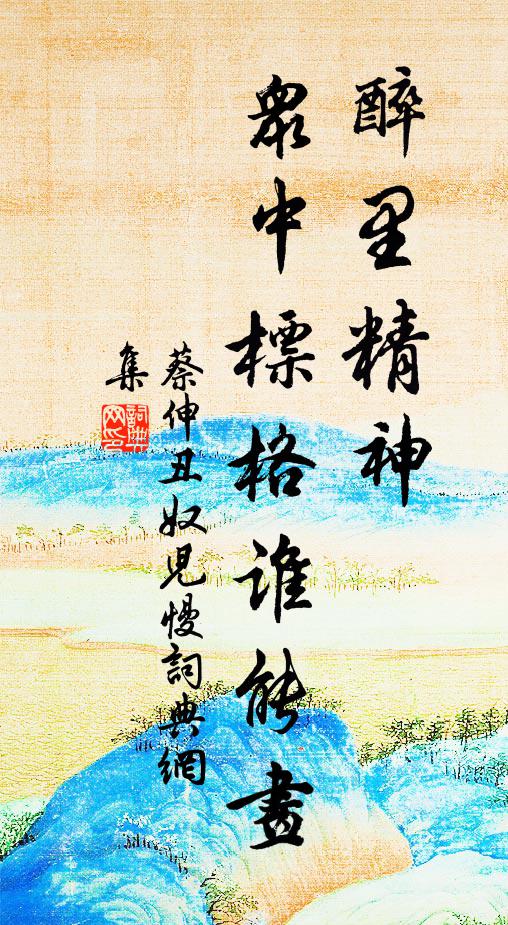 醉里精神
眾中標格誰能畫
蔡伸丑奴兒慢詞典網
集
詞典網印